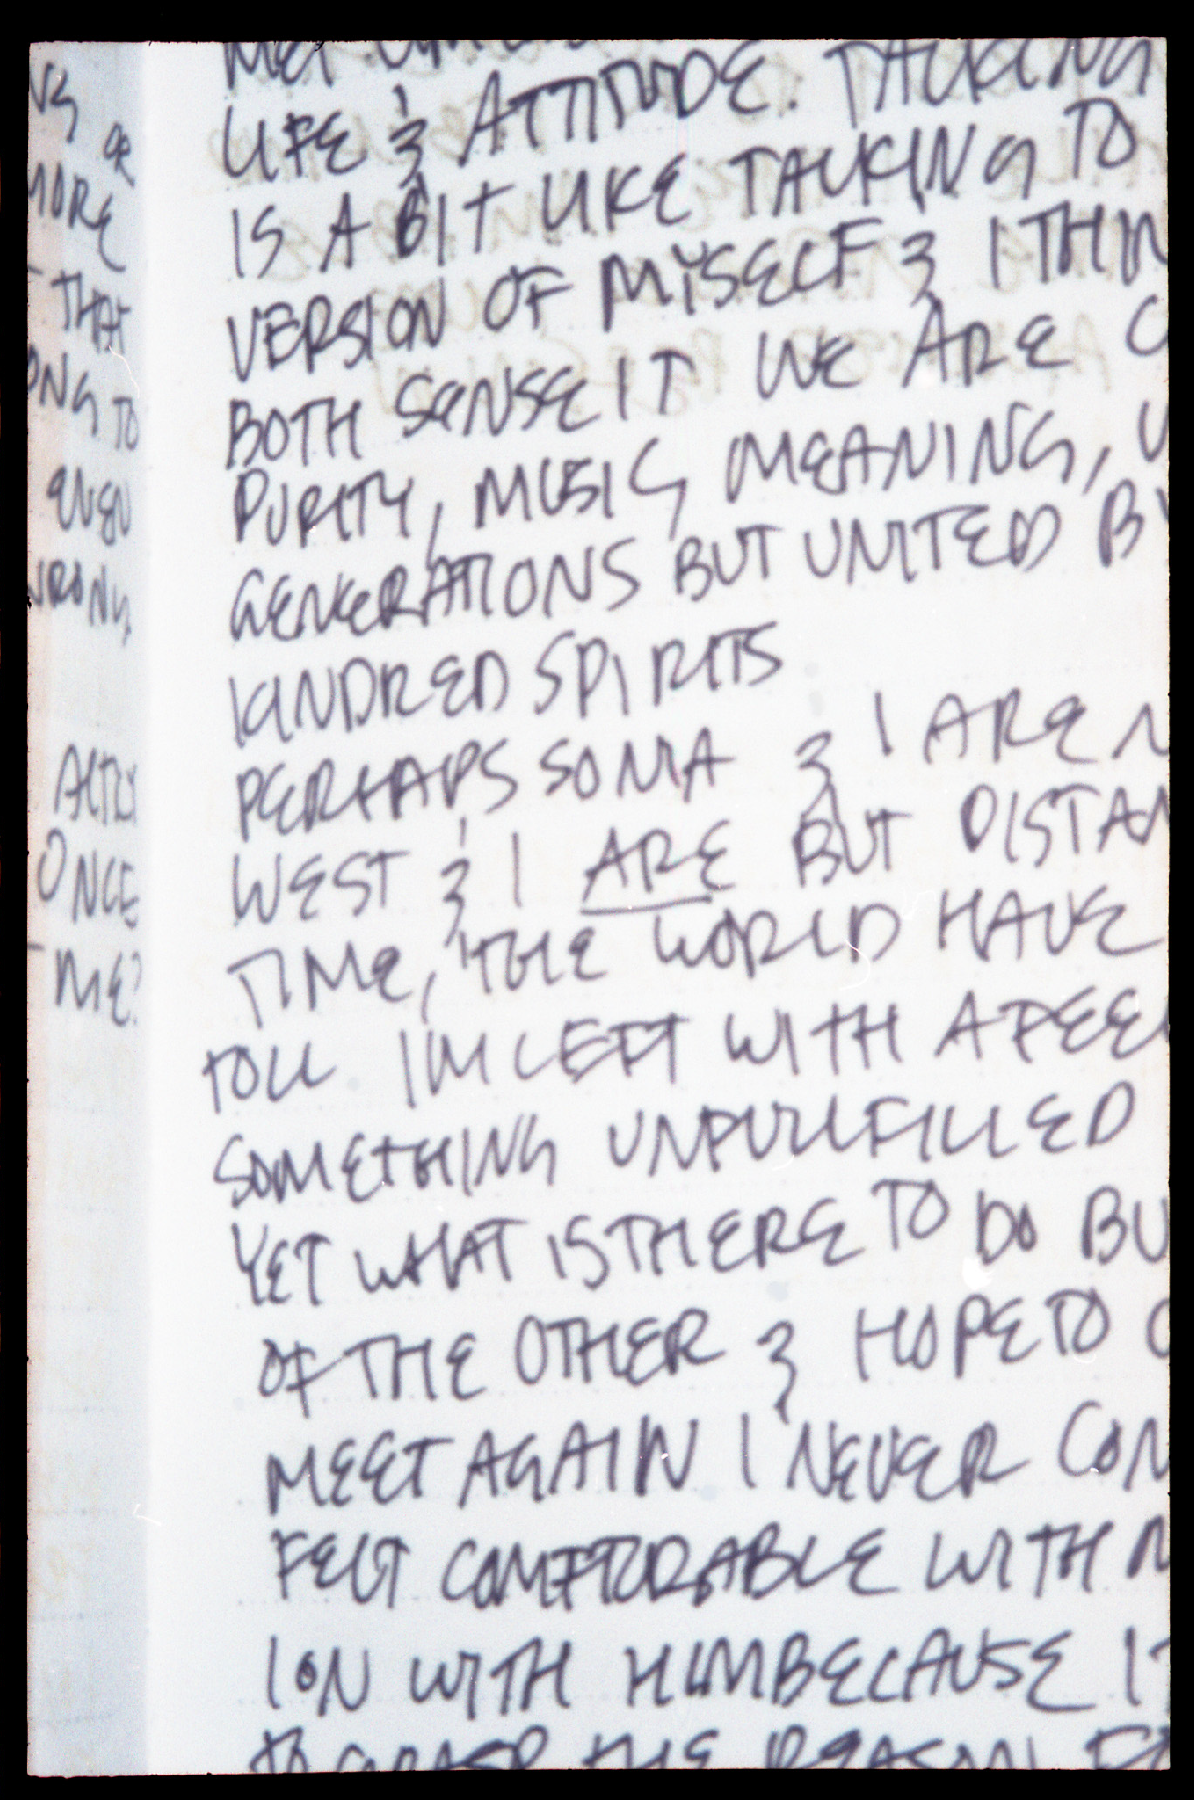 NG
OR
MORE
THAT
ONG TO
EVEN
WRONG
ONCE
ME?
MET
LIFE & ATTITUDE. TALKING
IS A BIT LIKE TALKING TO
VERSION OF MYSELF & I THIN
BOTH SENSE IT WE ARE C
PURITY, MUSIC, MEANING, U
GENERATIONS BUT UNITED BY
KINDRED SPIRITS
PERHAPS SONIA & I ARE N
WEST & I ARE BUT DISTAN
TIME, THE WORLD HAVE
TOLL IM LEFT WITH A FEEL
SOMETHING UNFULFILLED
YET WHAT IS THERE TO DO BU
OF THE OTHER & HOPE TO C
MEET AGAIN I NEVER CON
FELT COMFTORABLE WITH M
ION WITH HIM BECAUSE IT
TO GRASP THE REASON FO